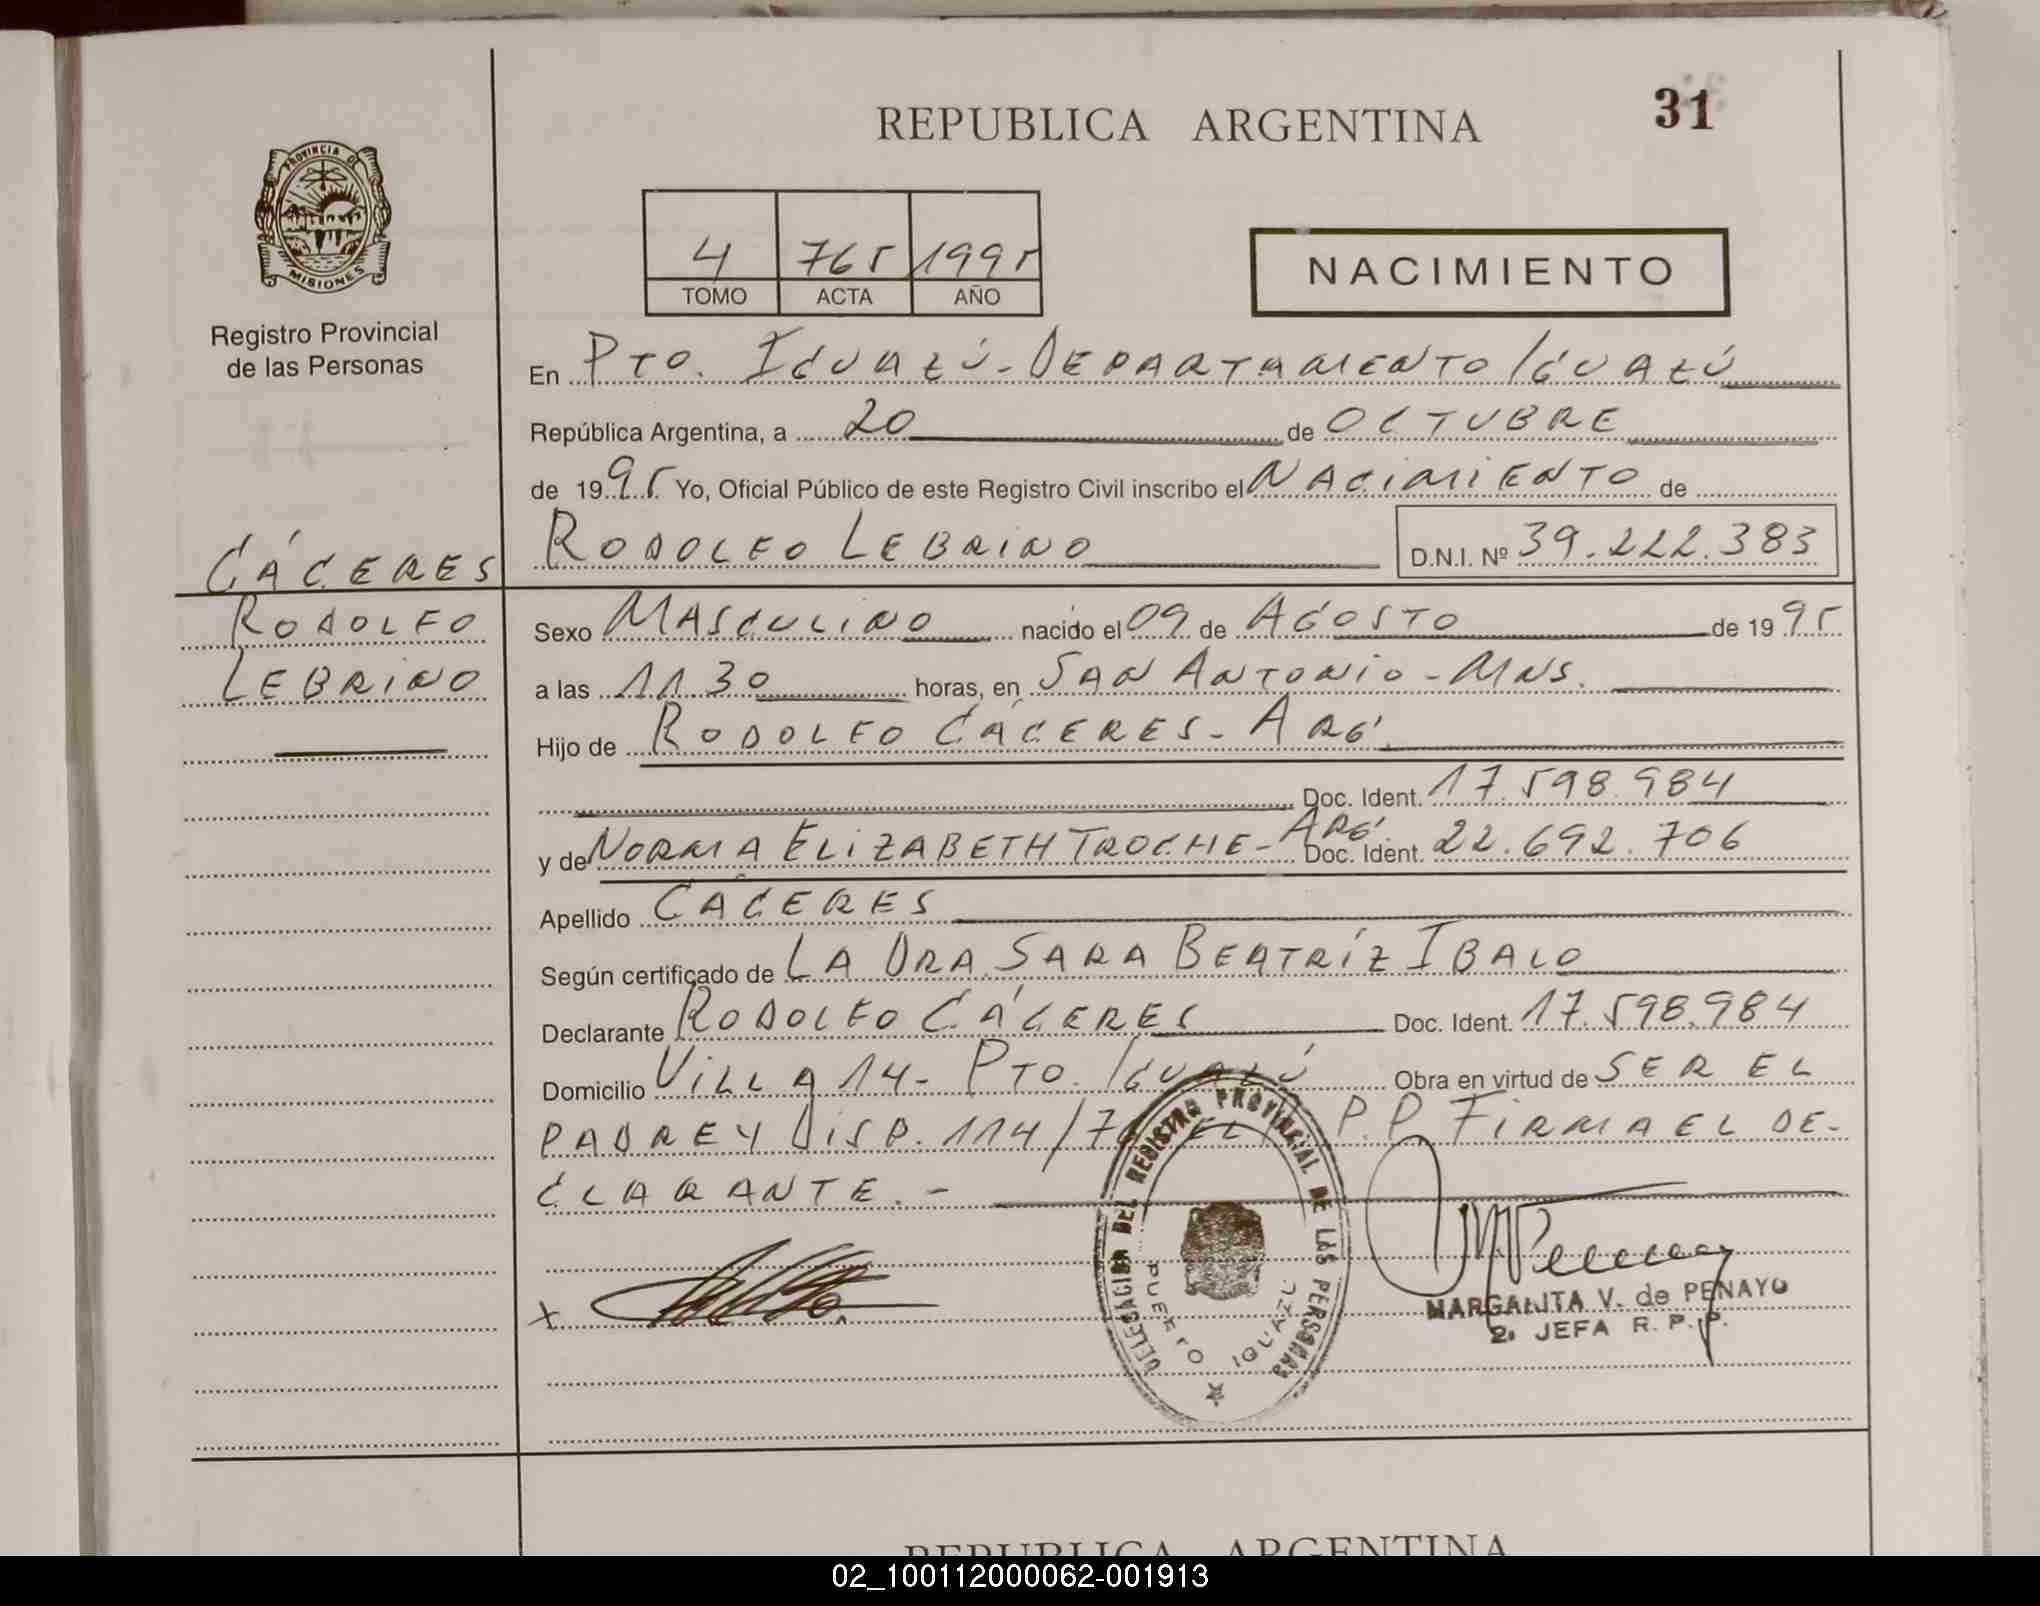 REPUBLICA ARGENTINA
31
PROVINCIA DE
MISIONES
Registro Provincial
de las Personas
4 765 1995
TOMO ACTA AÑO
NACIMIENTO
En PTO. IGUAZÚ - DEPARTAMENTO IGUAZÚ
República Argentina, a 20 de OCTUBRE
de 1995 Yo, Oficial Público de este Registro Civil inscribo el NACIMIENTO de
RODOLFO LEBRINO D.N.I. Nº 39.222.383
CÁCERES
RODOLFO
LEBRINO
Sexo MASCULINO nacido el 09 de AGOSTO de 1995
a las 11.30 horas, en SAN ANTONIO - MNS.
Hijo de RODOLFO CÁCERES - ARG.
Doc. Ident. 17.598.984
y de NORMA ELIZABETH TROCHE - ARG. Doc. Ident. 22.692.706
Apellido CÁCERES
Según certificado de LA DRA. SARA BEATRÍZ IBALO
Declarante RODOLFO CÁCERES Doc. Ident. 17.598.984
Domicilio VILLA 14 - PTO. IGUAZÚ Obra en virtud de SER EL
PADRE Y DISP. 114/7 EL P.P. FIRMA EL DE-
CLARANTE.-
DELEGACION DEL REGISTRO PROVINCIAL DE LAS PERSONAS
PUERTO IGUAZU
X
MARGARITA V. de PENAYO
2ª JEFA R. P. P.
REPUBLICA ARGENTINA
02_100112000062-001913